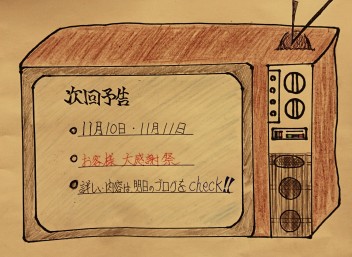 次回予告
11月10日・11月11日
お客様 大感謝祭
詳しい内容は明日のブログをcheck!!